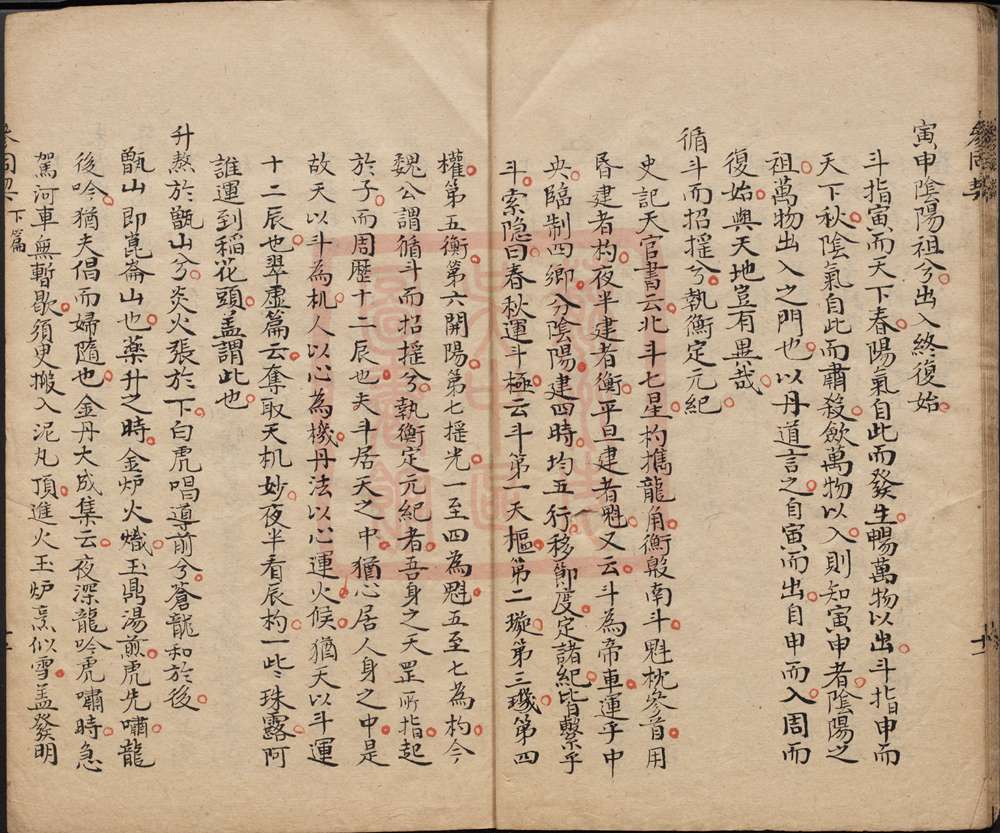 寅申陰陽祖兮出入終復始
斗指寅而天下春陽氣自此而發生暢萬物以出斗指申而
天下秋陰氣自此而肅殺歛萬物以入則知寅申者陰陽之
祖萬物出入之門也以丹道言之自寅而出自申而入周而
復始與天地豈有異哉
循斗而招摇兮執衡定元紀
史記天官書云北斗七星杓攜龍角衡殷南斗魁枕參首用
昏建者杓夜半建者衡平旦建者魁又云斗為帝車運乎中
央臨制四鄉分陰陽建四時均五行移節度定諸紀皆繫乎
斗索隐曰春秋運斗極云斗第一天樞第二璇第三璣第四
權第五衡第六開陽第七摇光一至四為魁五至七為杓今
魏公謂循斗而招摇兮執衡定元紀者吾身之天罡所指起
於子而周歷十二辰也夫斗居天之中猶心居人身之中是
故天以斗為机人以心為機丹法以心運火候猶天以斗運
十二辰也翠虛篇云奪取天机妙夜半看辰杓一些珠露阿
誰運到稻花頭盖謂此也
升熬於甑山兮炎火張於下白虎唱導前兮蒼龍和於後
甑山即崑崙山也藥升之時金炉火熾玉鼎湯煎虎先嘯龍
後吟猶夫倡而婦隨也金丹大成集云夜深龍吟虎嘯時急
駕河車無暫歇須臾搬入泥丸頂進火玉炉烹似雪盖發明
參同契 下篇